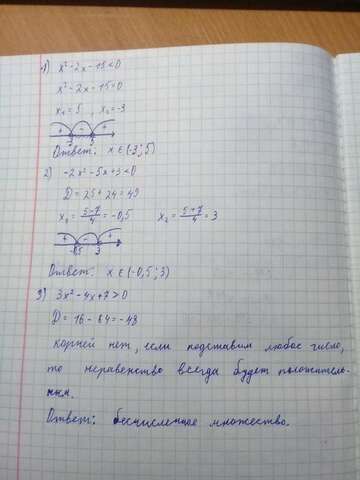 1) x² - 2x - 15 < 0
x² - 2x - 15 = 0
x₁ = 5 , x₂ = -3
+ - +
Ответ: x ∈ (-3; 5)
2) -2x² - 5x + 3 < 0
D = 25 + 24 = 49
x₁ = (5-7)/4 = -0,5 x₂ = (5+7)/4 = 3
+ - +
-0,5 3
Ответ: x ∈ (-0,5; 3)
3) 3x² - 4x + 7 > 0
D = 16 - 64 = -48
корней нет, если подставим любое число,
то неравенство всегда будет положитель-
ным.
Ответ: бесчисленное множество.